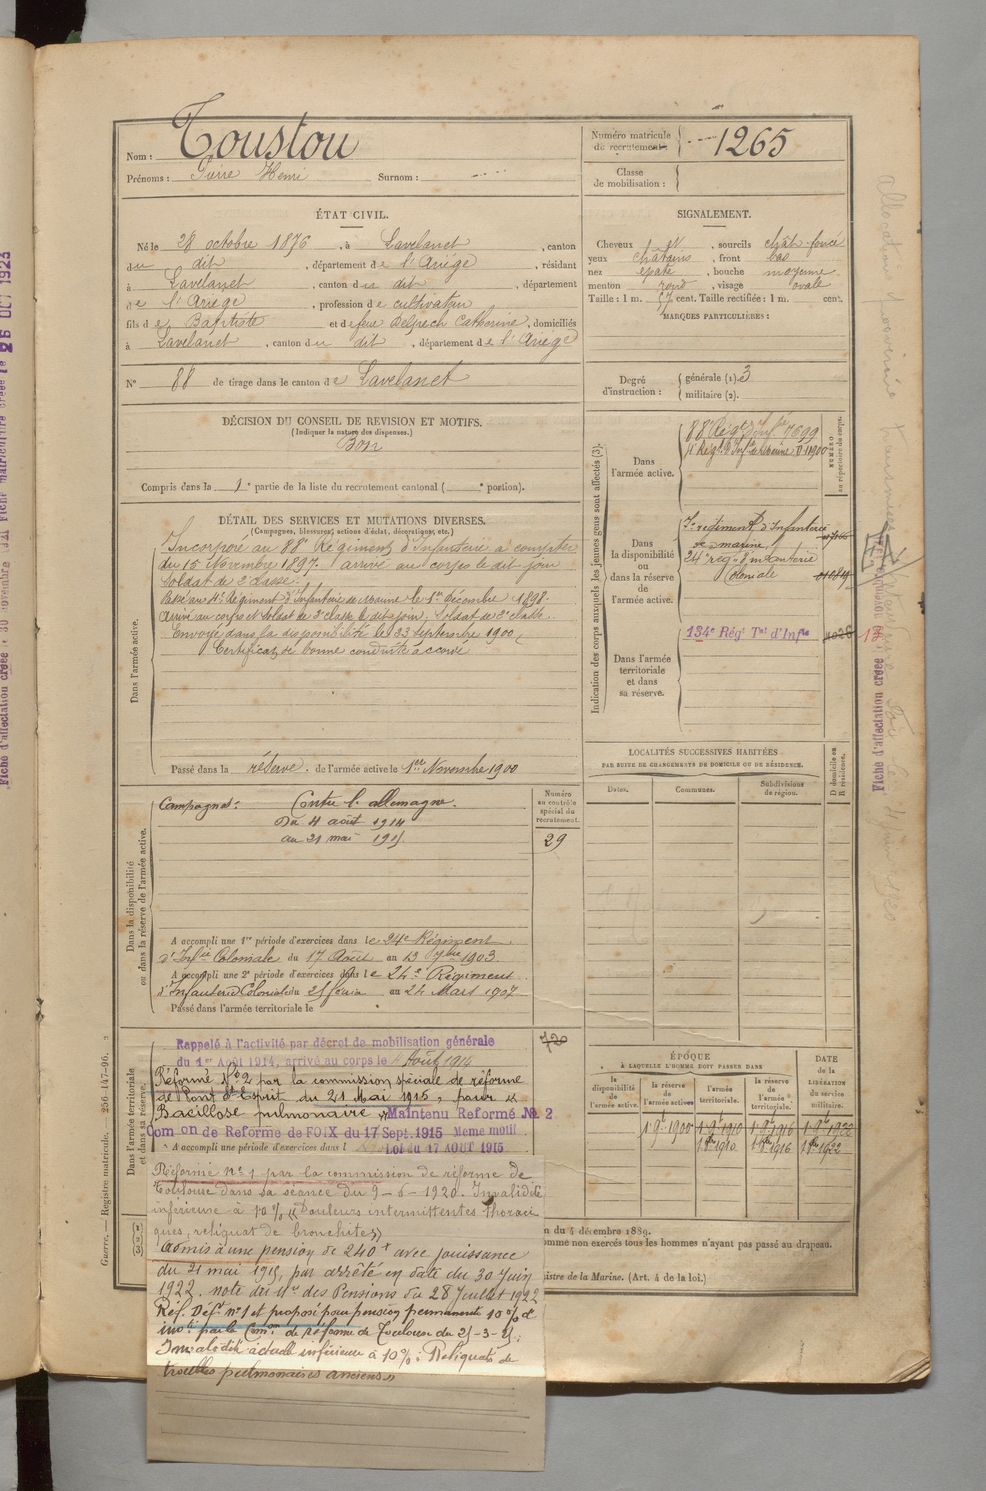 Nom : Toustou
Prénoms : Pierre Henri Surnom :
Numéro matricule de recrutement 1265
Classe de mobilisation :
ÉTAT CIVIL.
Né le 28 octobre 1876, à Lavelanet, canton
du dit, département de l'Ariège, résidant
à Lavelanet, canton du dit, département
de l'Ariège, profession de cultivateur
fils de Baptiste et de feue Delpech Catherine, domiciliés
à Lavelanet, canton du dit, département de l'Ariège
N° 88 de tirage dans le canton de Lavelanet
SIGNALEMENT.
Cheveux et, sourcils chât. foncé
yeux châtains, front bas
nez épaté, bouche moyenne
menton rond, visage ovale
Taille : 1 m. 57 cent. Taille rectifiée : 1 m. cent.
MARQUES PARTICULIÈRES :
Degré d'instruction : générale (1) 3
militaire (2).
DÉCISION DU CONSEIL DE REVISION ET MOTIFS.
(Indiquer la nature des dispenses.)
Bon
Compris dans la 1e partie de la liste du recrutement cantonal ( e portion).
DÉTAIL DES SERVICES ET MUTATIONS DIVERSES.
(Campagnes, blessures, actions d'éclat, décorations, etc.)
Dans l'armée active.
Incorporé au 88e Régiment d'Infanterie à compter
du 15 Novembre 1897. arrivé au corps le dit jour
soldat de 2e classe.
Passé au 4e Régiment d'Infanterie de marine le 1er Décembre 1898.
Arrivé au corps et soldat de 2e classe le dit jour, Soldat de 2e classe.
Envoyé dans la disponibilité le 23 septembre 1900
Certificat de bonne conduite accordé
Passé dans la réserve de l'armée active le 1er Novembre 1900
Indication des corps auxquels les jeunes gens sont affectés (3).
NUMÉRO au répertoire du corps.
Dans l'armée active.
88e Régt d'Infie 7699
Dans la disponibilité ou dans la réserve de l'armée active.
régiment d'Infanterie
de marine
24e rég. d'infanterie
Coloniale
Dans l'armée territoriale et dans sa réserve.
134e Régt Tal d'Infie
LOCALITÉS SUCCESSIVES HABITÉES
PAR SUITE DE CHANGEMENTS DE DOMICILE OU DE RÉSIDENCE.
Dates. Communes. Subdivisions de région. D domicile ou R résidence.
Dans la disponibilité ou dans la réserve de l'armée active.
Campagnes : Contre l'allemagne.
Du 4 août 1914
au 21 mai 1915
Numéro au contrôle spécial du recrutement.
29
A accompli une 1re période d'exercices dans le 24e Régiment
d'Infie Coloniale du 17 Août au 13 7bre 1903
A accompli une 2e période d'exercices dans le 24e Régiment
d'Infanterie Coloniale du au 24 Mars 1907
Passé dans l'armée territoriale le
Dans l'armée territoriale et dans sa réserve.
720
Rappelé à l'activité par décret de mobilisation générale
du 1er Août 1914, arrivé au corps le 4 Août 1914
Réformé N° 2 par la commission spéciale de réforme
de Pont St Esprit du 21 Mai 1915, pour «
Bacillose pulmonaire » Maintenu Reformé No 2
Com on de Reforme de FOIX du 17 Sept. 1915 Meme motif
A accompli une période d'exercices dans l Loi du 17 AOUT 1915
Réformé n° 1 par la commission de réforme de
Toulouse dans sa séance du 9-6-1920. Invalidité
inférieure à 10% « Douleurs intermittentes thoraci
ques, reliquat de bronchite »
Admis à une pension de 240f avec jouissance
du 21 mai 1915, par arrêté en date du 30 Juin
1922. note du Mre des Pensions du 28 Juillet 1922
Réf. Défve n° 1 et proposé pour pension permanente 10% d'
invté par la Comon de réforme de Toulouse du 25-3-25 :
Invalidité actuelle inférieure à 10% : Reliquats de
troubles pulmonaires anciens »
ÉPOQUE
À LAQUELLE L'HOMME DOIT PASSER DANS
la disponibilité de l'armée active. la réserve de l'armée active. l'armée territoriale. la réserve de l'armée territoriale.
DATE de la LIBÉRATION du service militaire.
1. 9re 1900 1. 9re 1910 1. 9re 1916 1. 9re 1922
1er 9re 1910 1er 9re 1916 1er 9re 1922
n du 4 décembre 1889.
omme non exercés tous les hommes n'ayant pas passé au drapeau.
inistre de la Marine. (Art. 4 de la loi.)
Guerre. — Registre matricule. — 256-147-96.